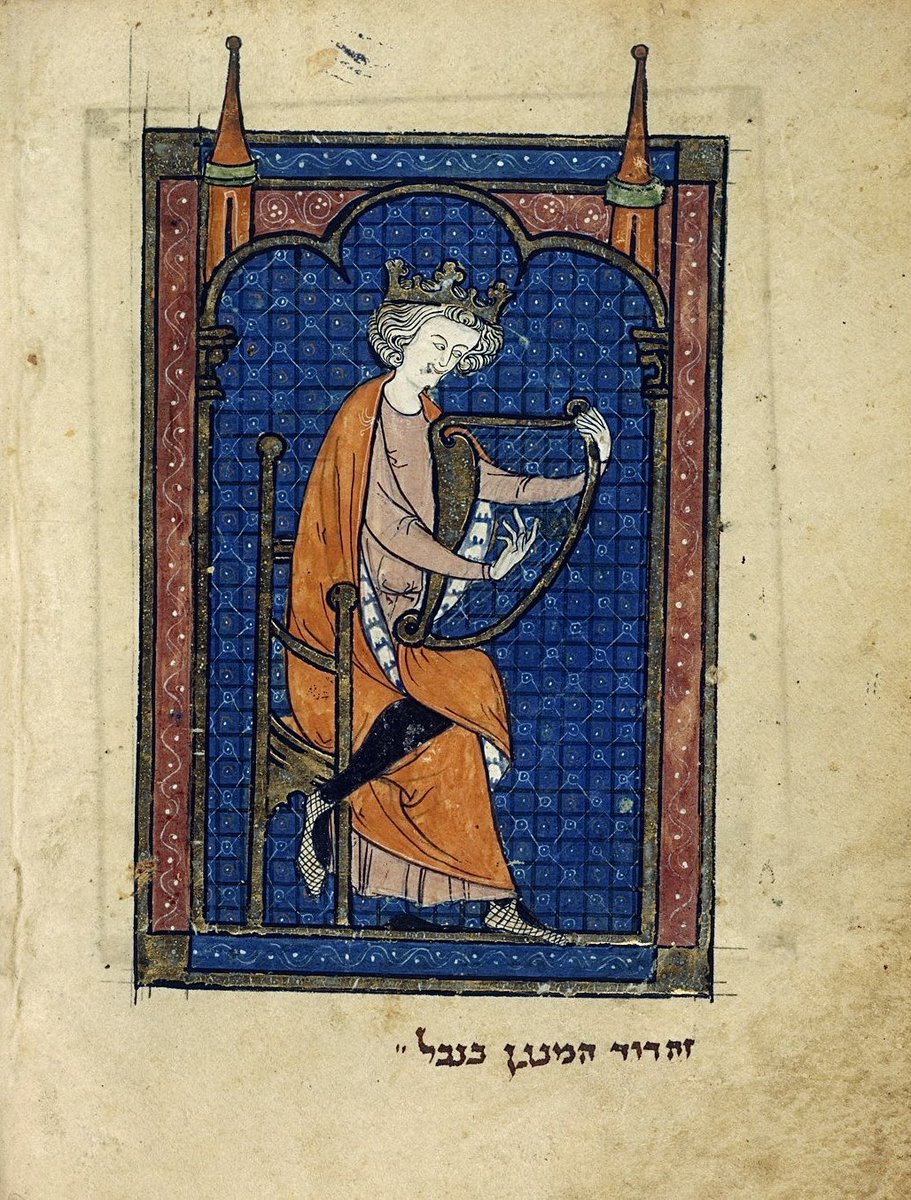 זה דוד המנגן בנבל "